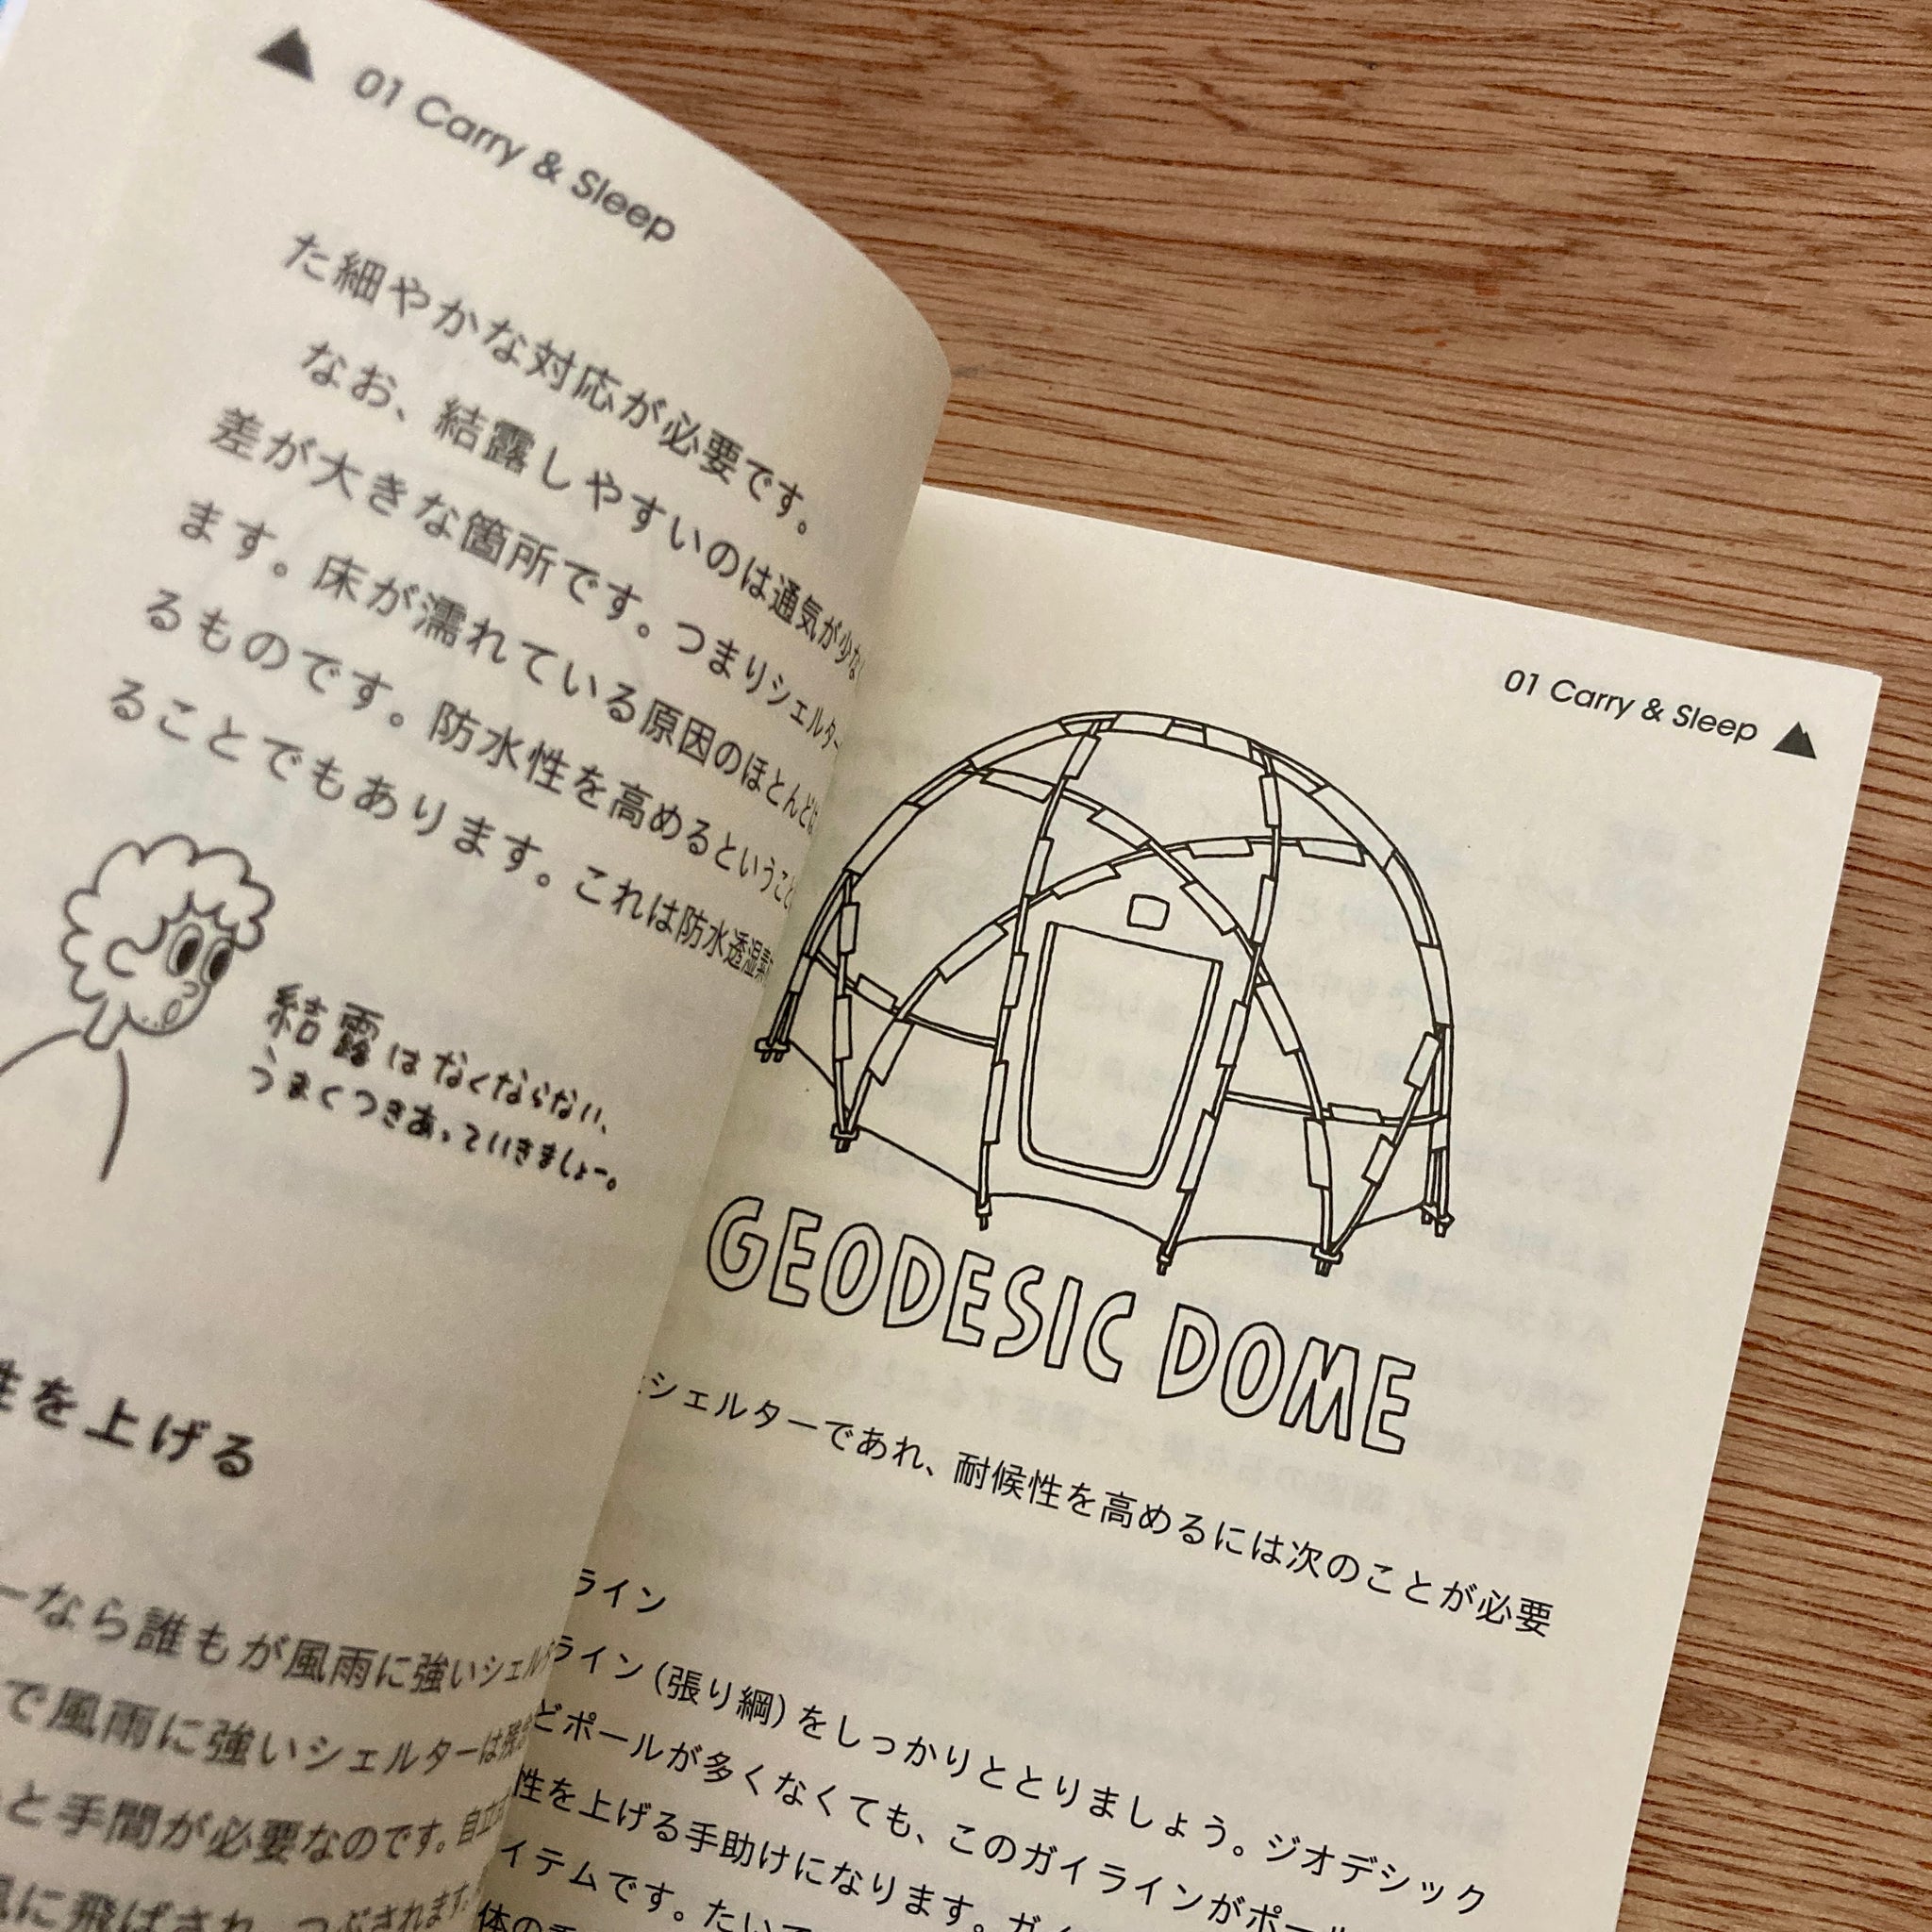 01 Carry & Sleep
た細やかな対応が必要です。
なお、結露しやすいのは通気が少な
差が大きな箇所です。つまりシェルター
ます。床が濡れている原因のほとんどは
るものです。防水性を高めるということ
ることでもあります。これは防水透湿素
結露はなくならない、
うまくつきあっていきましょー。
性を上げる
ーなら誰もが風雨に強いシェル
で風雨に強いシェルターは残念
と手間が必要なのです。自立式
風に飛ばされ、つぶされます。
01 Carry & Sleep
GEODESIC DOME
シェルターであれ、耐候性を高めるには次のことが必要
ライン
ライン（張り綱）をしっかりととりましょう。ジオデシック
どポールが多くなくても、このガイラインがポール
性を上げる手助けになります。ガイ
イテムです。たいて
体の